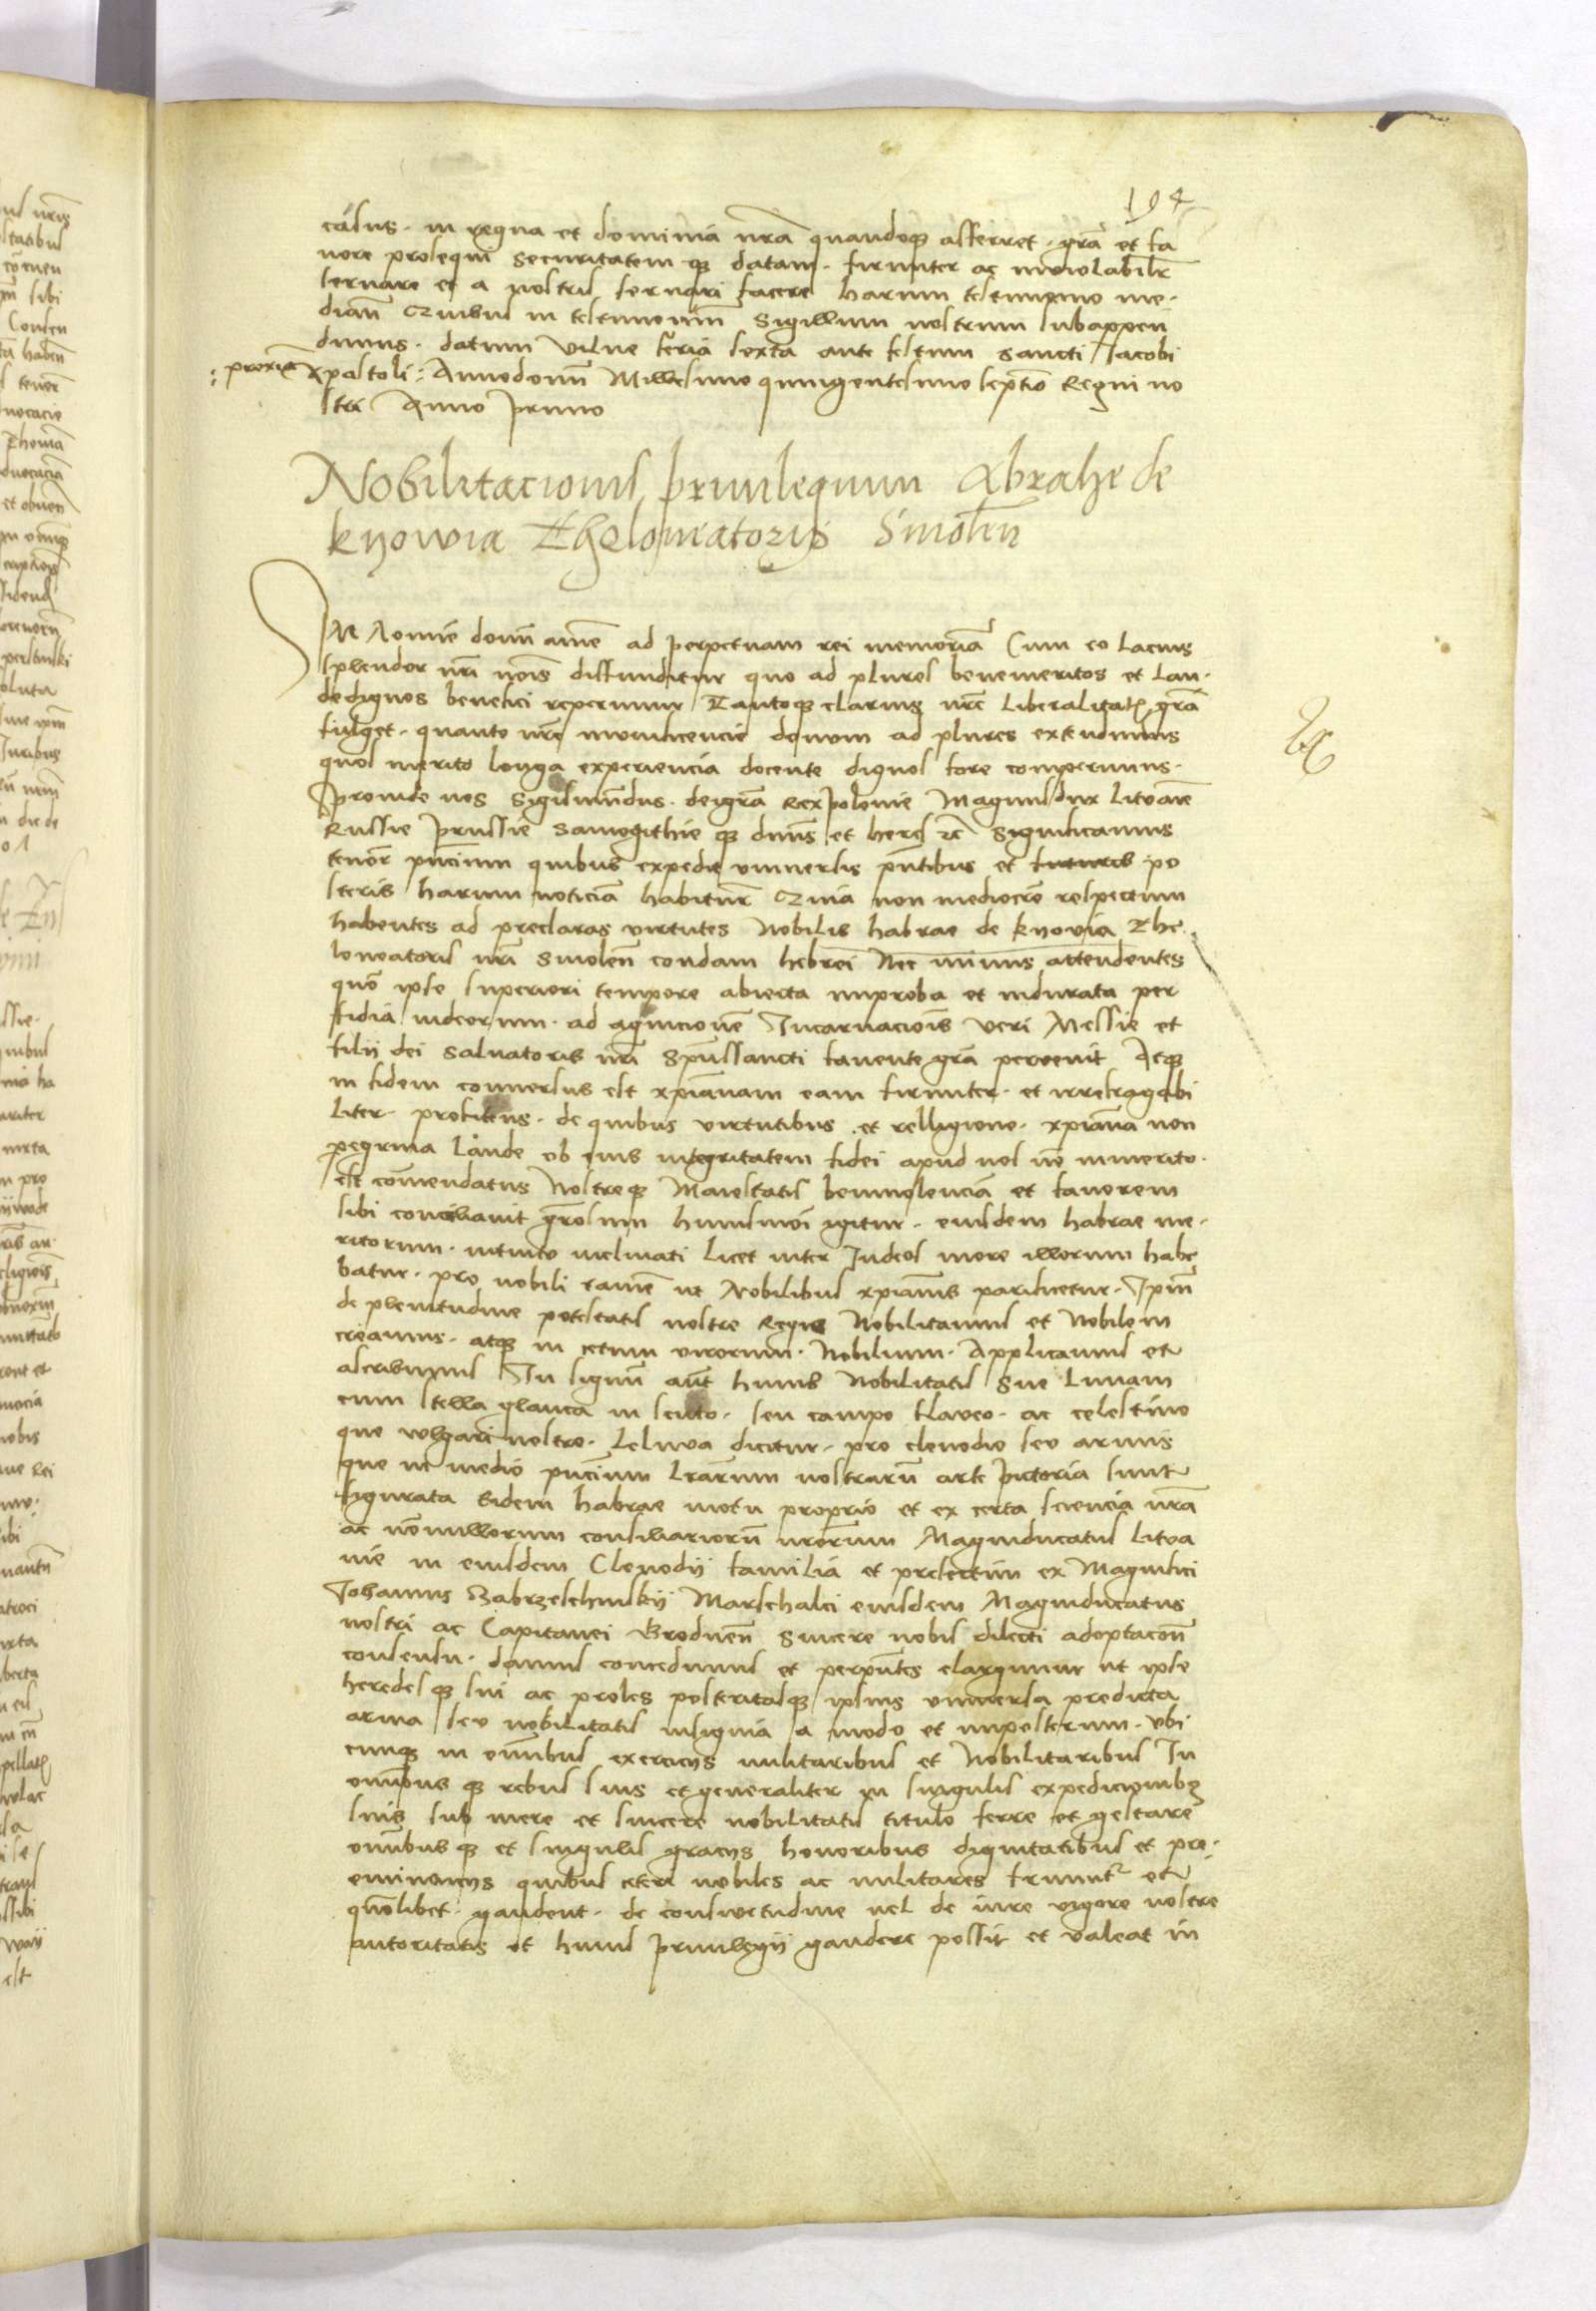 194
casus · in regna et dominia nrā quandoq3 afferret · grā et fa
vore prosequi securitatem q3 datam · firmiter ac inviolabilr̄
servare et a nostris servari facere harum testimonio me ·
dian̄ Quibus in testimoniū Sigillum nostrum subappen
dimus · datum Vilne feria sexta ante festum Sancti Iacobi
: proximā Apostoli : Anno domī Millesimo quingentesimo septīo Regni no
stri Anno primo
Nobilitacionis privilegium Abrahe de
kyowia Theloneatoris Smolen̄
IN Nomīe domī amē ad perpetuam rei memoriā Cum eo Lacius
splendor nrī nōis diffunditur quo ad plures benemeritos et Lau ·
dedignos benefici reperimur Tantoq3 clarius nrē Liberalitatis grā
fulget · quanto nrē munificencie donum ad plures extendimus
quos merito longa experiencia docente dignos fore comperimus ·
Proinde nos Sigismūdus · dei grā Rex Polonie Magnus dux Litvāie
Russie Prussie Samogithie q3 dn̄us et heres rc̄ Significamus
tenōr pn̄cium quibus expedit universis pn̄tibus et futuris po
steris harum noticiā habitur̄ Quia non mediocrē respectum
habentes ad preclaras virtutes Nobilis habrae de kyovia The ·
loneatoris nrī Smolen̄ condam hebrei Nec minus attendentes
quō ipse superiori tempore abiecta improba et indurata per
fidia iudeorum · ad agnicionē Incarnaciōis Veri Messie et
filii dei Salvatoris nrī Sp̄ussancti favente grā pervenit Atq3
in fidem conversus est xpianam eam firmiter · et irrefragabi
liter · profitens · de quibus virtutibus · et relligione · xpiana non
pegrina Laude ob eius integritatem fidei apud nos nō immerito ·
est cōmendatus Nostreq3 Maiestatis benivolenciā et favorem
sibi conciliavit grōsum huiusmōi igitur · eiusdem habrae me ·
ritorum · intuitu inclinati Licet inter Iudeos more illorum habe
batur · pro nobili tamē ut Nobilibus xpianis parificetur · Ipm̄
de plenitudine potestatis nostre Regie Nobilitamus et Nobilem
creamus · atq3 in cetum virorum · Nobilium · Applicamus et
ascribimus In signū aūt huius Nobilitatis Sue Lunam
cum stella glauca in scuto · seu campo flaveo · ac celestino
que vulgari nostro · Leliva dicitur · pro clenodio seu armis
que in medio pn̄cium Lrārum nostrarū arte pictoria sunt
figurata Eidem habrae motu proprio et ex certa sciencia nrā
ac nōnullorum consiliariorū nrōrum Magniducatus Litva
nie in eiusdem Clenodii familia et presertim ex Magnifici
Iohannis Zabrzeschinskii Marschalci eiusdem Magniducatus
nostri ac Capitanei Grodnen̄ Sincere nobis dilecti adoptacōn̄
consensu · damus concedimus et perpn̄tes elargimur ut ipse
heredes q3 sui ac proles posteritasq3 ipsius universa predicta
arma seu nobilitatis insignia a modo et imposterum · Ubi
cunq3 in omībus exerciciis militaribus et Nobilitaribus In
omībus q3 rebus suis et generaliter in singulis expedicionibus
suis sub mere et sincere nobilitatis titulo ferre et gestare
omībus q3 et singulis graciis honoribus dignitatibus et pre ·
eminenciis quibus ceteri nobiles ac militares fruunt̄ et
quōlibet · gaudent · de consuetudine vel de iure vigore nostre
autoritatis et huius privilegii gaudere possit et valeat in